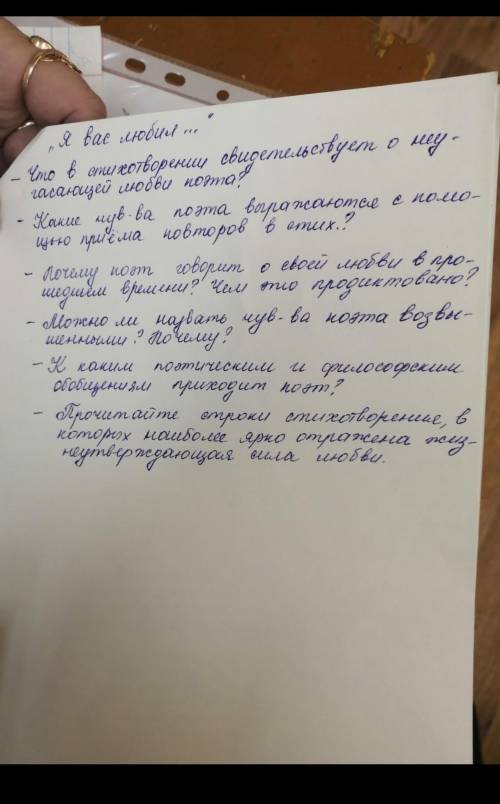 „Я вас любил..."
- Что в стихотворении свидетельствует о неу-
гасающей любви поэта?
- Какие чув-ва поэта выражаются с помо-
щью приёма повторов в стих.?
- Почему поэт говорит о своей любви в про-
шедшем времени? Чем это продиктовано?
- Можно ли назвать чув-ва поэта возвы-
шенными? Почему?
- К каким поэтическим и философским
обобщениям приходит поэт?
- Прочитайте строки стихотворения, в
которых наиболее ярко отражена жиз-
неутверждающая сила любви.